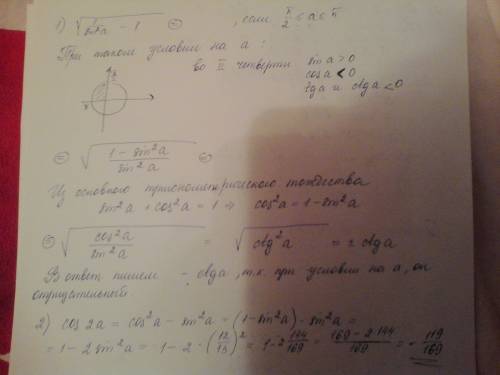 1) √(1/sin²a − 1) ⊜ , если π/2 ≤ a ≤ π
При таком условии на a:
во II четверти sin a > 0
cos a < 0
tg a и ctg a < 0
⊜ √((1 − sin²a)/sin²a) ⊜
Из основного тригонометрического тождества
sin²a + cos²a = 1 ⇒ cos²a = 1 − sin²a
⊜ √(cos²a/sin²a) = √(ctg²a) = ± ctg a
В ответ пишем − ctg a, т.к. при условии на a, он
отрицательный.
2) cos 2a = cos²a − sin²a = (1 − sin²a) − sin²a =
= 1 − 2 sin²a = 1 − 2 · (12/13)² = 1 − 2 144/169 = (169 − 2·144)/169 = − 119/169